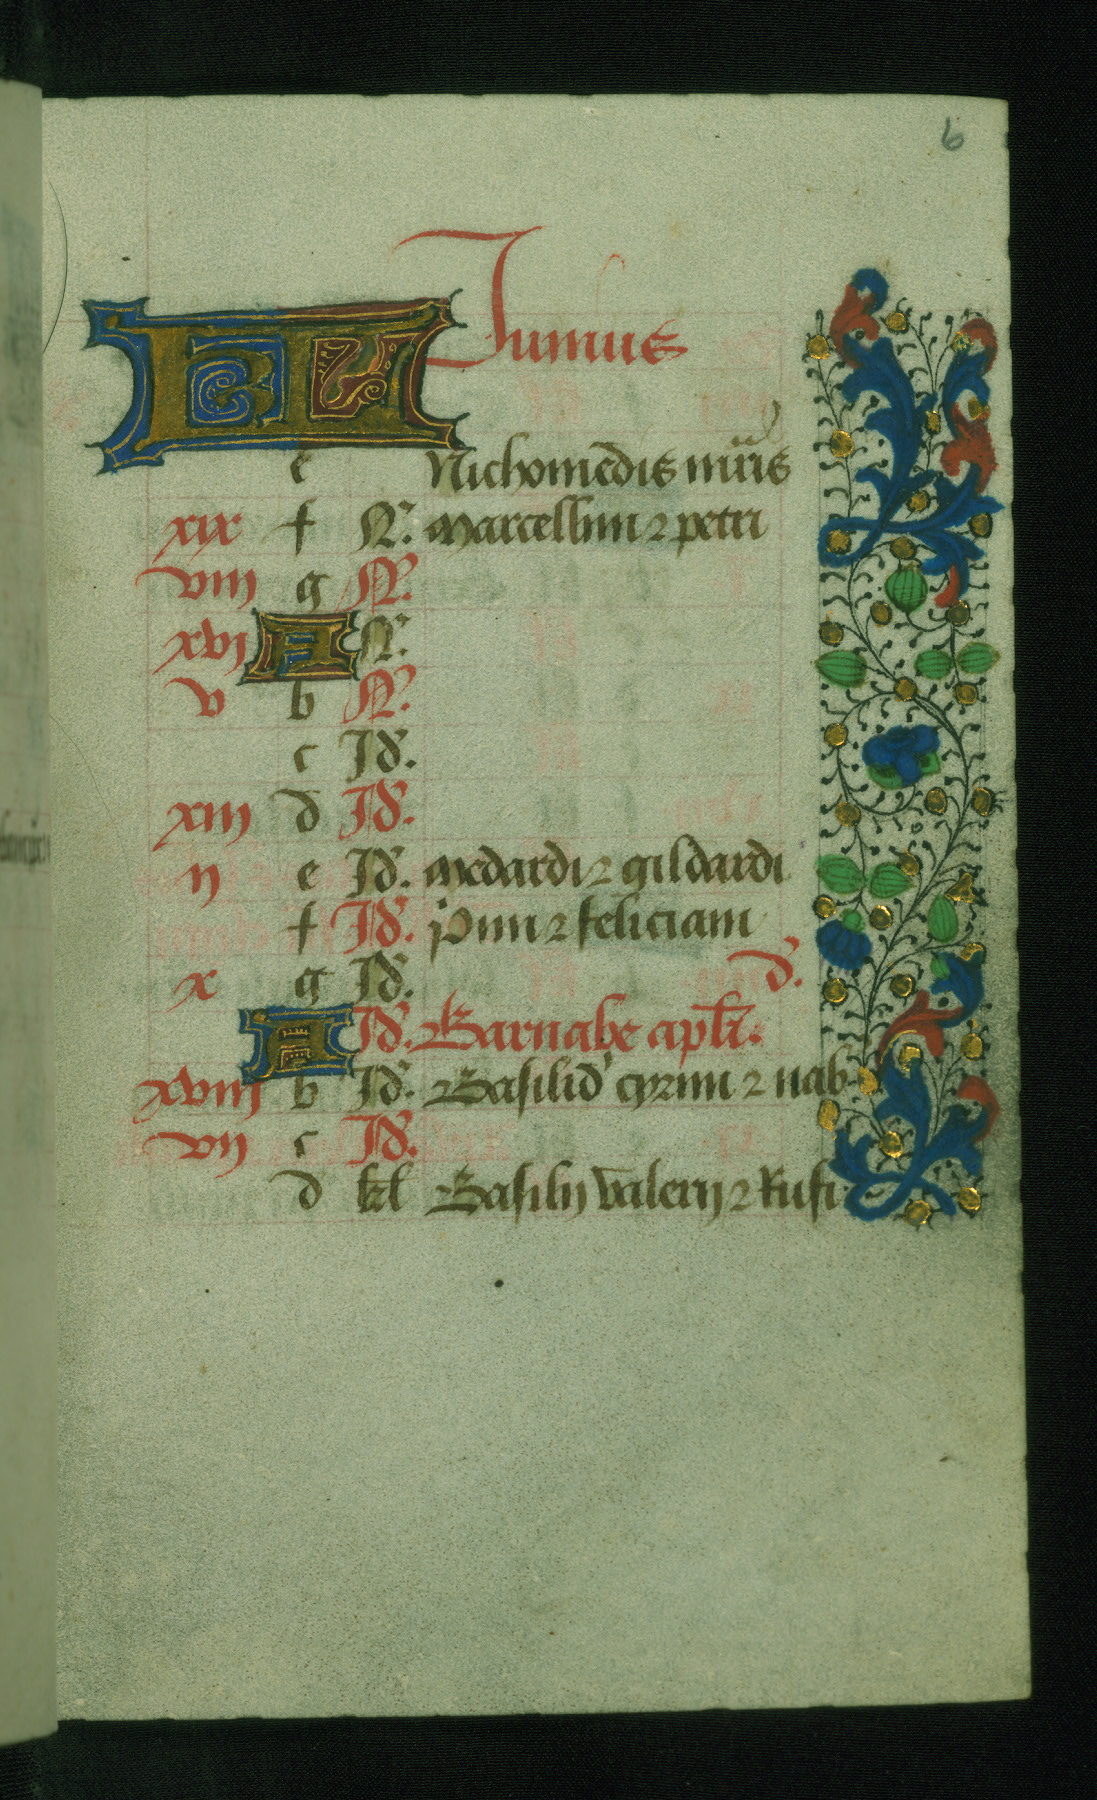 6
KL Junius
e Nichomedis mr̃is
xix f N. marcellini ⁊ petri
viij g N.
xvj A N.
v b N.
c Id.
xiij d Id.
ij e Id. medardi ⁊ gildardi
f Id. p̃mi ⁊ feliciani
x g Id. d.
A Id. Barnabe apl̃i.
xviij b Id. Basilid' cyrini ⁊ nab
vij c Id.
d kl̃ Basilij valerij ⁊ Rufi